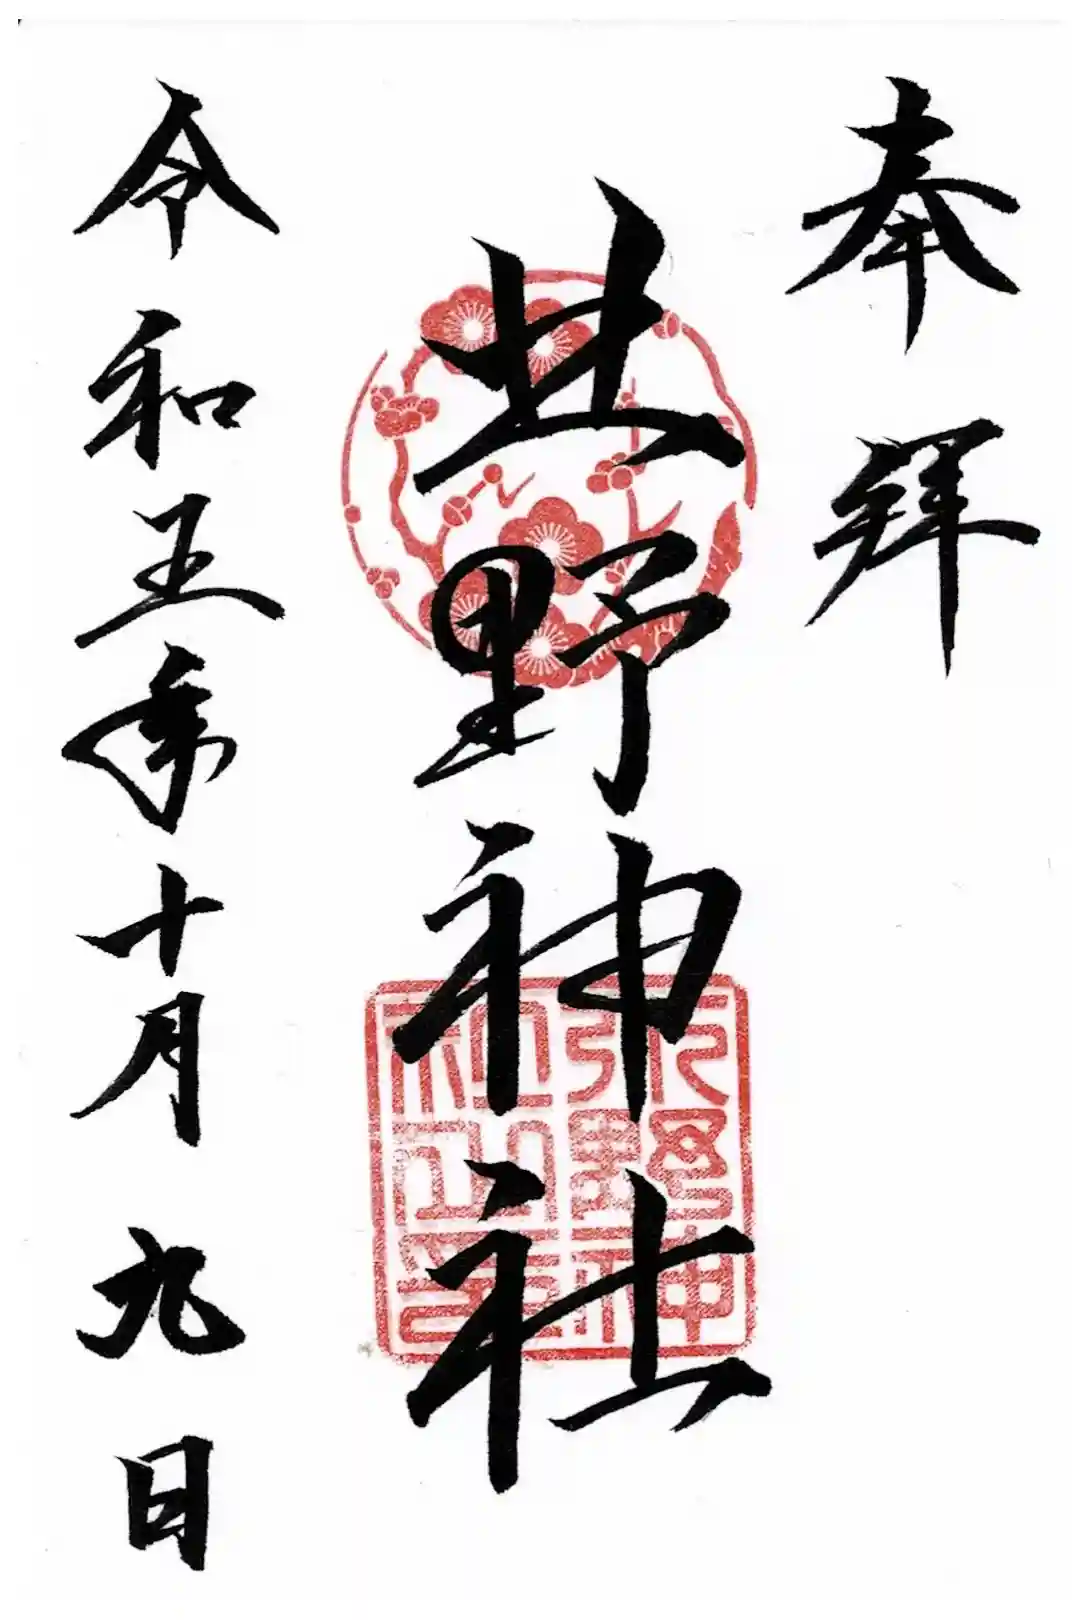 奉拝
北野神社
令和五年十月九日
北野神
社